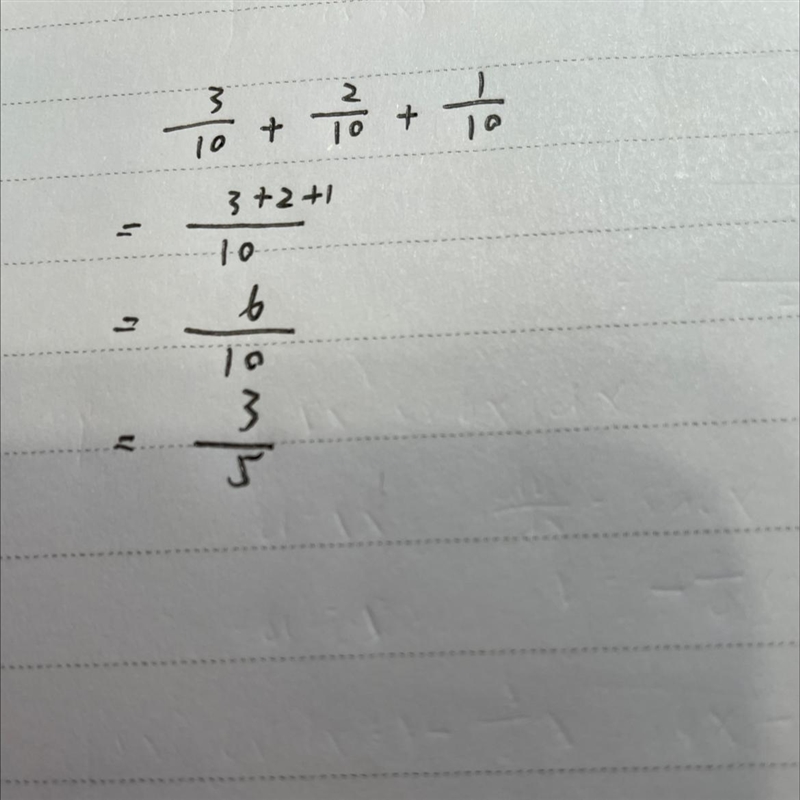 3/10 + 2/10 + 1/10
= 3+2+1/10
= 6/10
= 3/5